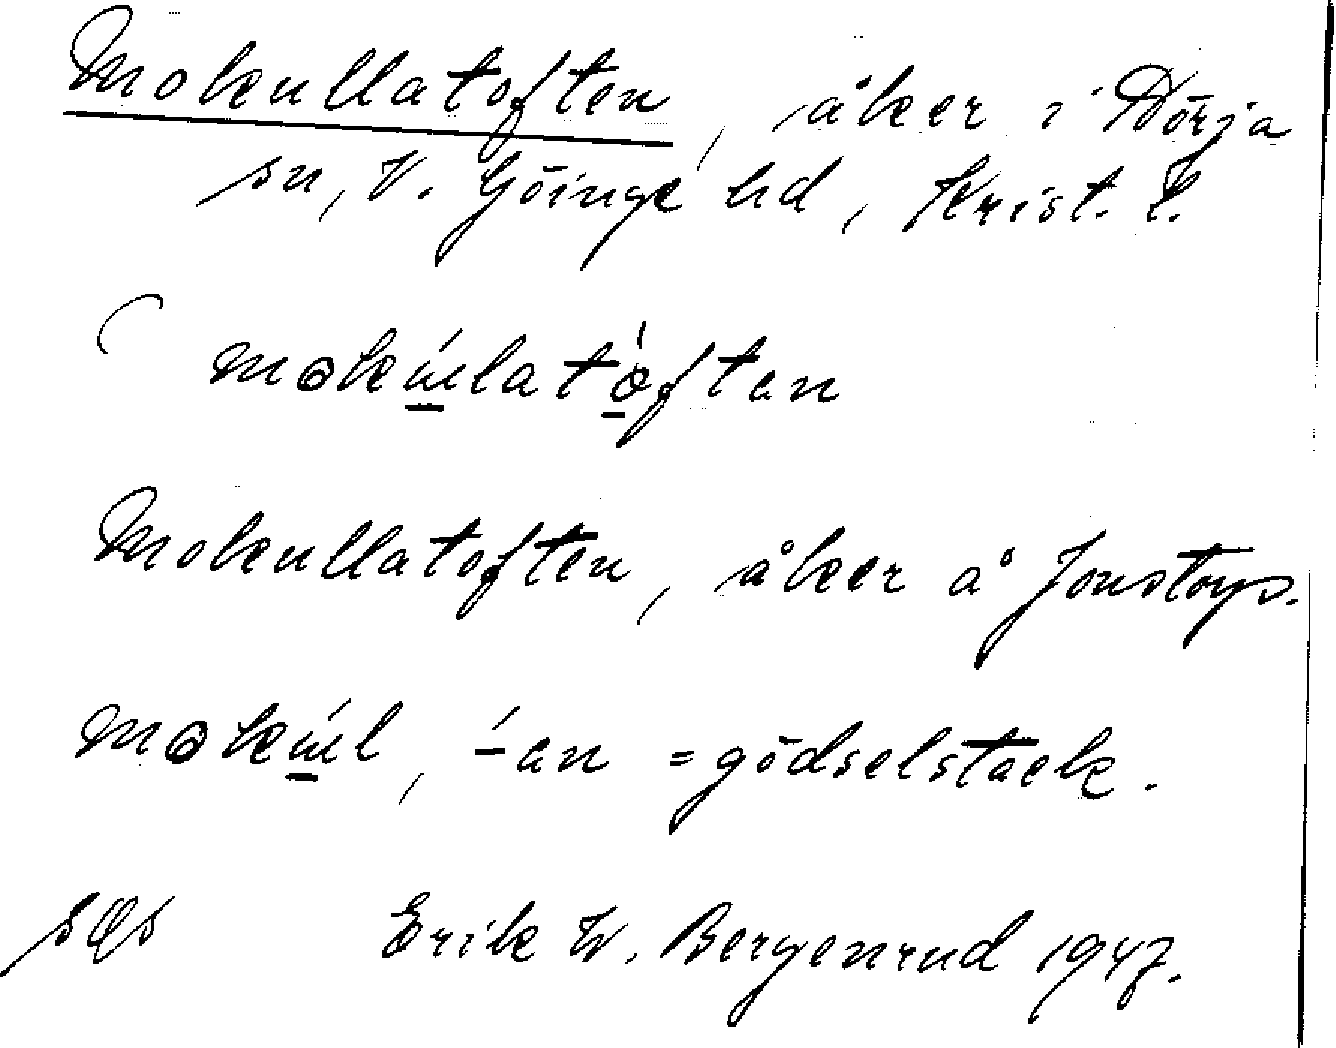 Mokullatoften, åker i Dörja
sn, V. Göinge hd, Krist. l.
mokúlatóftan
Mokullatoften, åker å Jonstorps.
mokúl, -an = gödselstack.
Erik W. Bergenrud 1947.